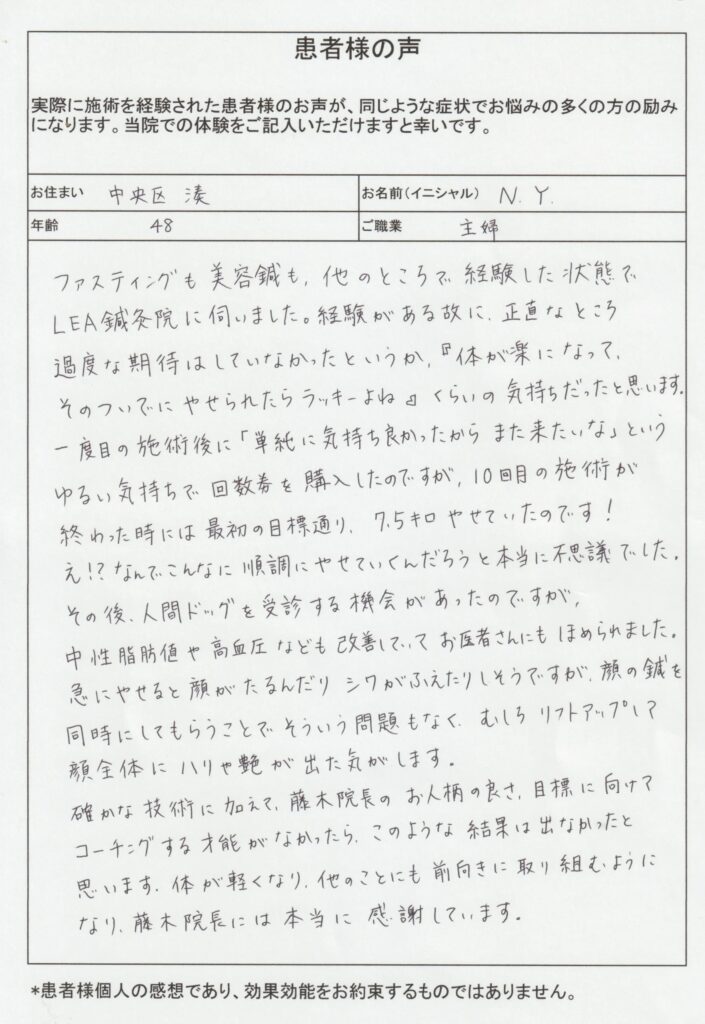 患者様の声
実際に施術を経験された患者様のお声が、同じような症状でお悩みの多くの方の励み
になります。当院での体験をご記入いただけますと幸いです。
お住まい 中央区 湊 お名前(イニシャル) N. Y.
年齢 48 ご職業 主婦
ファスティングも美容鍼も、他のところで経験した状態で
LEA鍼灸院に伺いました。経験がある故に、正直なところ
過度な期待はしていなかったというか、『体が楽になって、
そのついでにやせられたらラッキーよね』くらいの気持ちだったと思います。
一度目の施術後に「単純に気持ち良かったからまた来たいな」という
ゆるい気持ちで回数券を購入したのですが、10回目の施術が
終わった時には最初の目標通り、7.5キロやせていたのです!
え!?なんでこんなに順調にやせていくんだろうと本当に不思議でした。
その後、人間ドッグを受診する機会があったのですが、
中性脂肪値や高血圧なども改善していてお医者さんにもほめられました。
急にやせると顔がたるんだりシワがふえたりしそうですが、顔の鍼を
同時にしてもらうことでそういう問題もなく、むしろリフトアップして
顔全体にハリや艶が出た気がします。
確かな技術に加えて、藤木院長のお人柄の良さ、目標に向けて
コーチングする才能がなかったら、このような結果は出なかったと
思います。体が軽くなり、他のことにも前向きに取り組むように
なり、藤木院長には本当に感謝しています。
*患者様個人の感想であり、効果効能をお約束するものではありません。